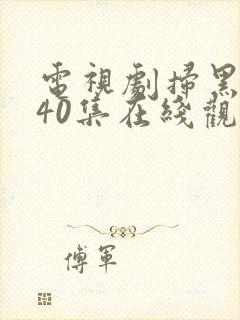 電視劇掃黑
40集在綫觀
傅軍